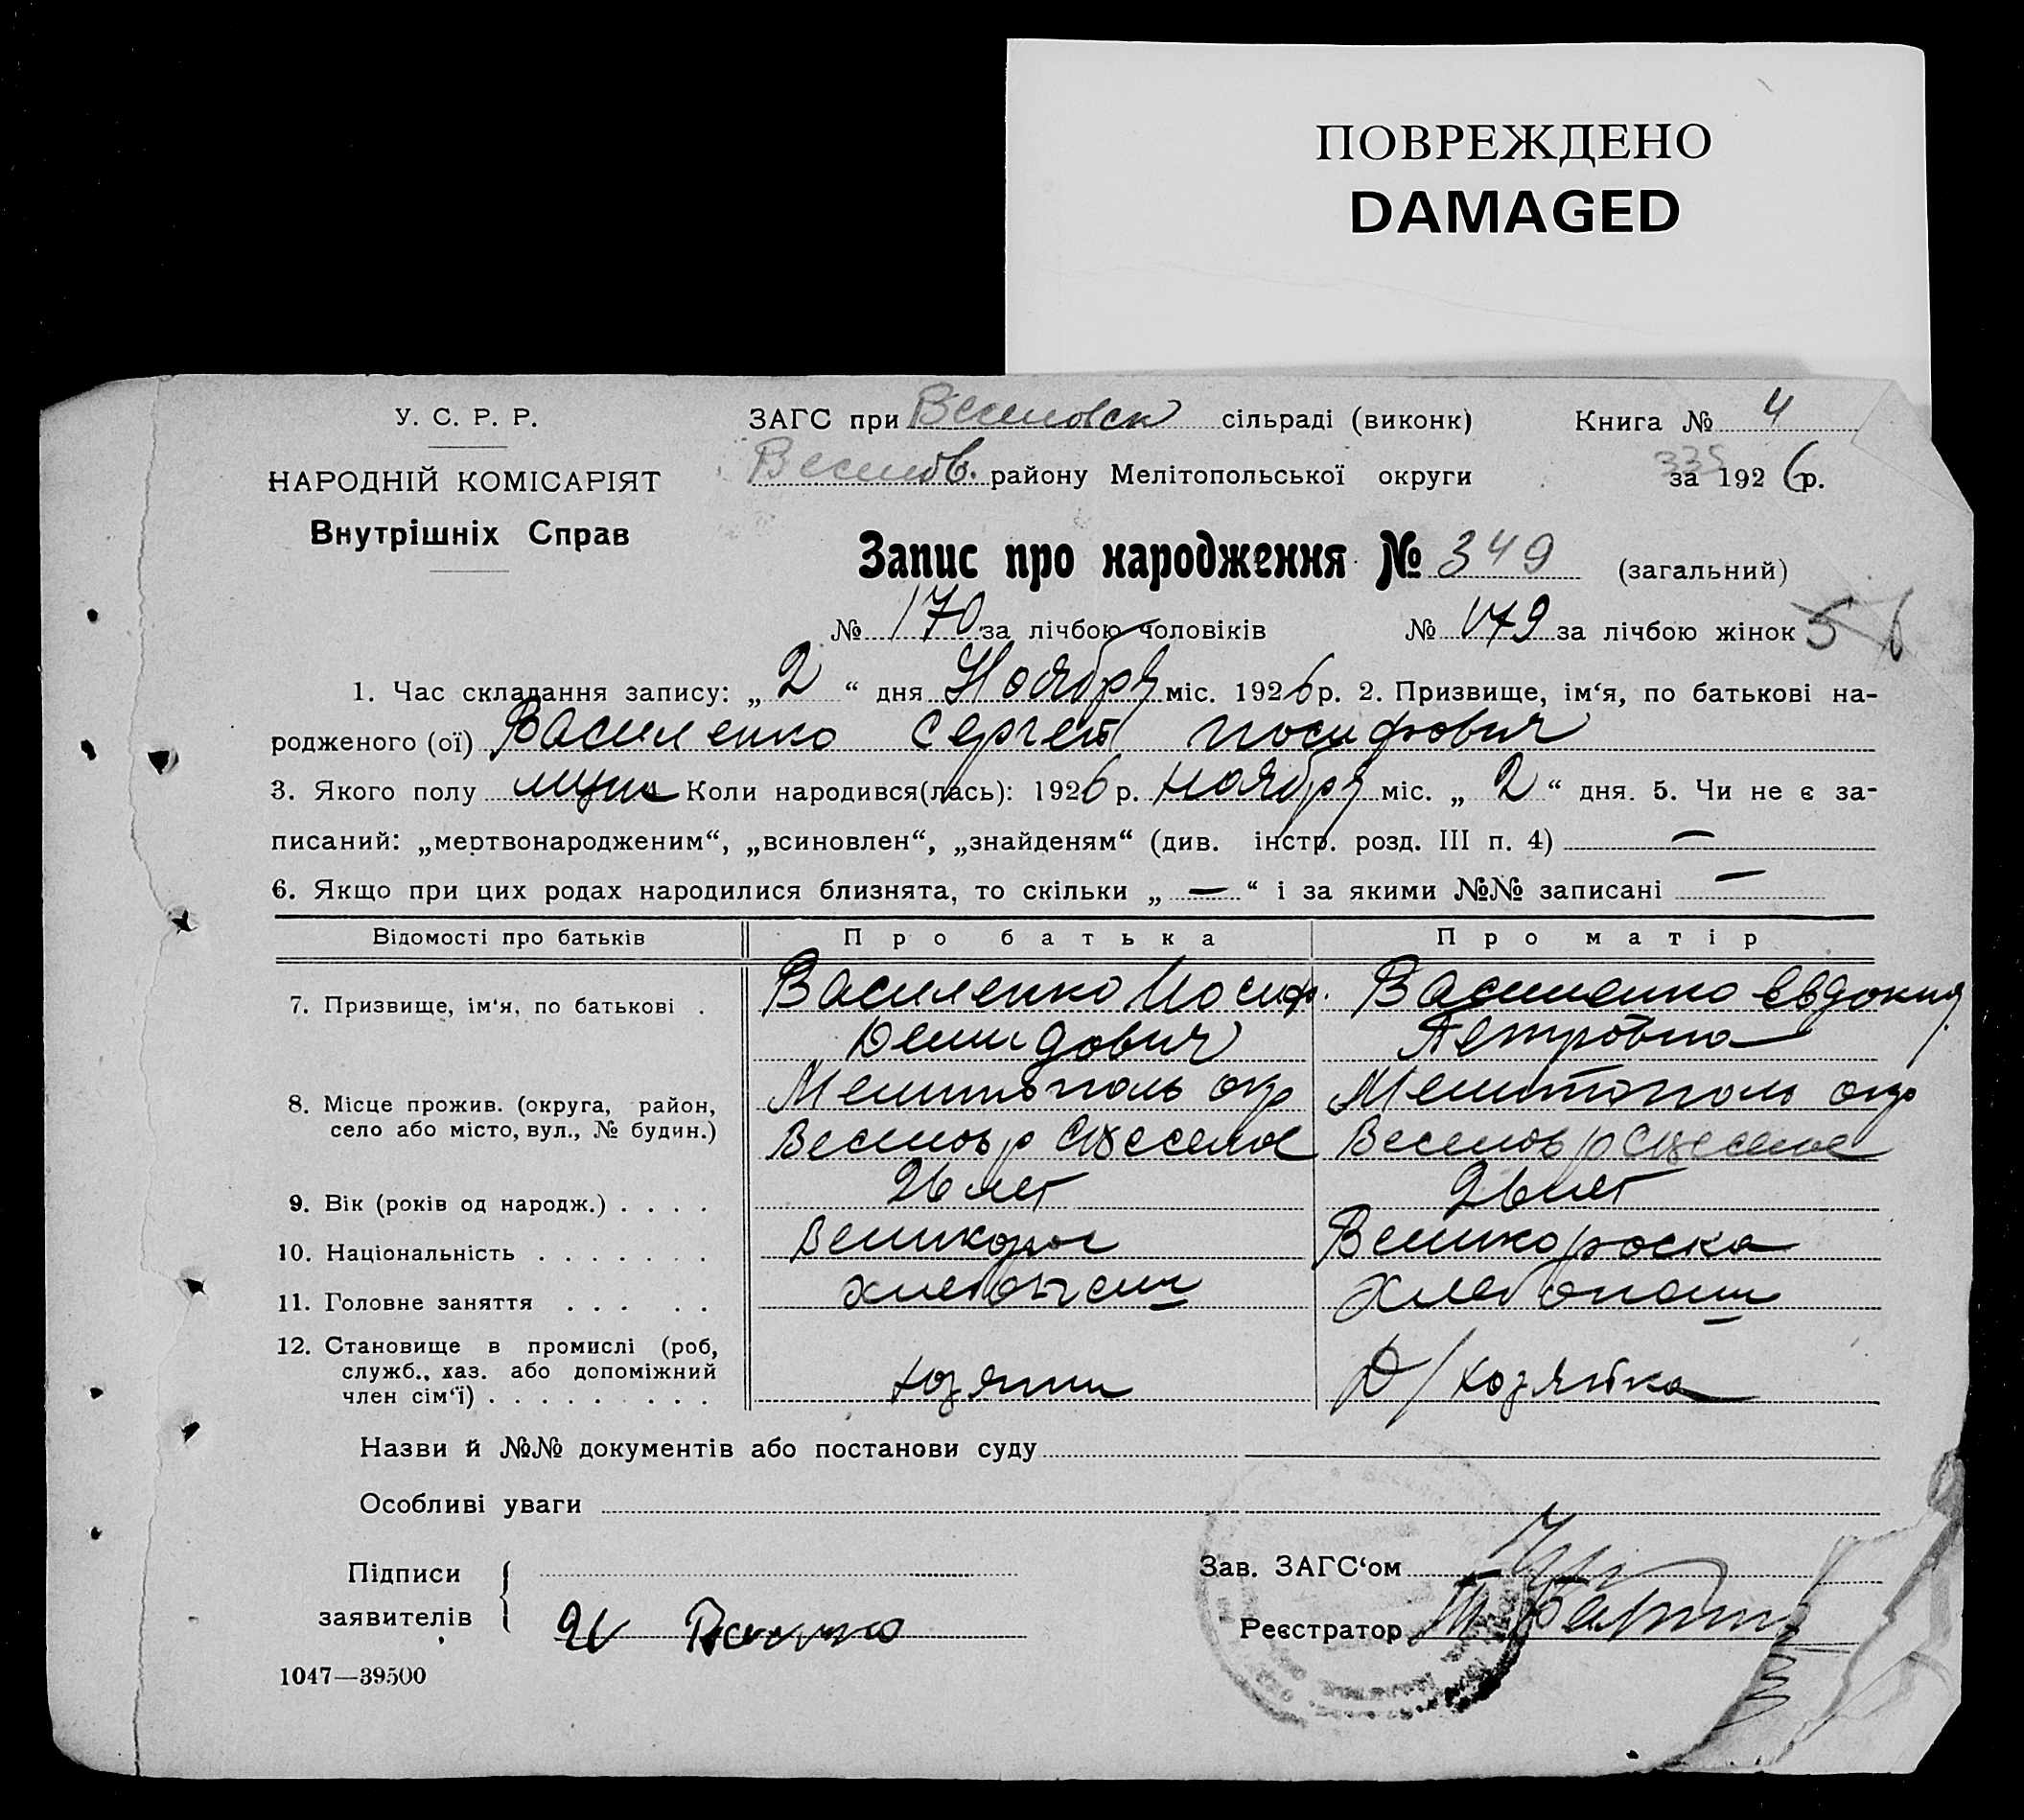 ПОВРЕЖДЕНО
DAMAGED
У. С. Р. Р.
НАРОДНІЙ КОМІСАРІЯТ
Внутрішніх Справ
ЗАГС при Веселовск сільраді (виконк)
Веселов. району Мелітопольської округи
Книга № 4
335
за 1926 р.
Запис про народження № 349 (загальний)
№ 170 за лічбою чоловіків № 179 за лічбою жінок
1. Час складання запису: „2“ дня Ноября міс. 1926 р. 2. Призвище, ім‘я, по батькові на-
родженого (ої) Василенко Сергей Иосифович
3. Якого полу муж Коли народився(лась): 1926 р. Ноября міс. „2“ дня. 5. Чи не є за-
писаний: „мертвонародженим“, „всиновлен“, „знайденям“ (див. інстр. розд. III п. 4) —
6. Якщо при цих родах народилися близнята, то скільки „—“ і за якими №№ записані —
Відомості про батьків Про батька Про матір
7. Призвище, ім‘я, по батькові . Василенко Иосиф. Василенко Евдокия
Демидович Петровна
8. Місце прожив. (округа, район, село або місто, вул., № будин.) Мелитополь окр Мелитополь окр
Веселов р с Веселое Веселов р с Веселое
9. Вік (років од народж.) . . . . 26 лет 26 лет
10. Національність . . . . . . . Великорос Великороска
11. Головне заняття . . . . . хлебопаш Хлебопаш
12. Становище в промислі (роб, служб., хаз. або допоміжний член сім‘ї) . . . . . . . . . хозяин Д/хозяйка
Назви й №№ документів або постанови суду
Особливі уваги
Підписи
заявителів
Зав. ЗАГС‘ом
Реєстратор
1047—39500